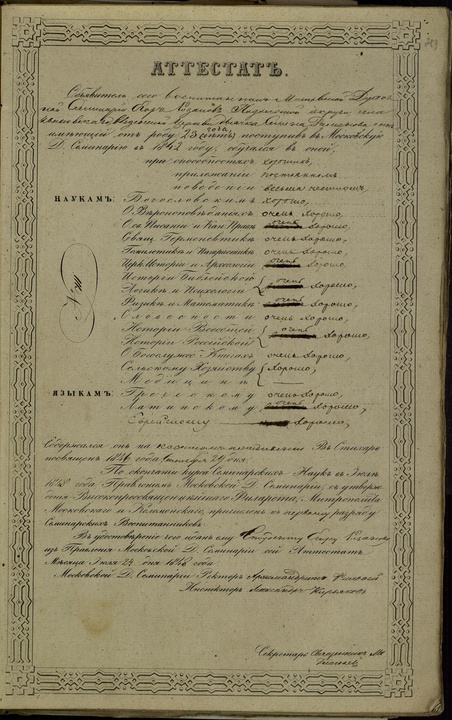 АТТЕСТАТЪ.
Объявитель сего воспитанникъ Московской Духов
ной Семинаріи Егоръ
имѣющій отъ роду 23 года поступивъ въ Московскую
Д. Семинарію въ 1842 году, обучался въ оной,
при способностяхъ хорошихъ,
прилежаніи постоянномъ
поведеніи весьма честномъ,
НАУКАМЪ: Богословскимъ хорошо,
О Вѣроисповѣданіяхъ очень хорошо,
О св. Писаніи и Кан. Правѣ очень хорошо,
Свящ. Герменевтикѣ очень хорошо,
Гомилетикѣ и Патристикѣ очень хорошо,
Церк. Исторіи и Археологіи очень хорошо,
Исторіи Библейской
Логикѣ и Психологіи очень хорошо,
Физикѣ и Математикѣ очень хорошо,
Словесности очень хорошо,
Исторіи Всеобщей
Исторіи Россійской очень хорошо,
О Богослужеб. Книгахъ очень хорошо,
Сельскому Хозяйству хорошо,
Медицинѣ —
ЯЗЫКАМЪ: Греческому очень хорошо,
Латинскому очень хорошо,
Еврейскому хорошо,
Содержался онъ на казенномъ Въ Стихарь
посвященъ 1846 года Сентября дня.
По окончаніи курса Семинарскихъ Наукъ въ Іюлѣ
1848 года Правленіемъ Московской Д. Семинаріи, съ утверж
денія Высокопреосвященнѣйшаго Филарета, Митрополита
Московскаго и Коломенскаго, причисленъ къ первому разряду
Семинарскихъ Воспитанниковъ.
Въ удостовѣреніе чего и данъ ему Студенту Егору
изъ Правленія Московской Д. Семинаріи сей Аттестатъ
Мѣсяца Іюля 24 дня 1848 года
Московской Д. Семинаріи Ректоръ Архимандритъ
Инспекторъ
Секретарь